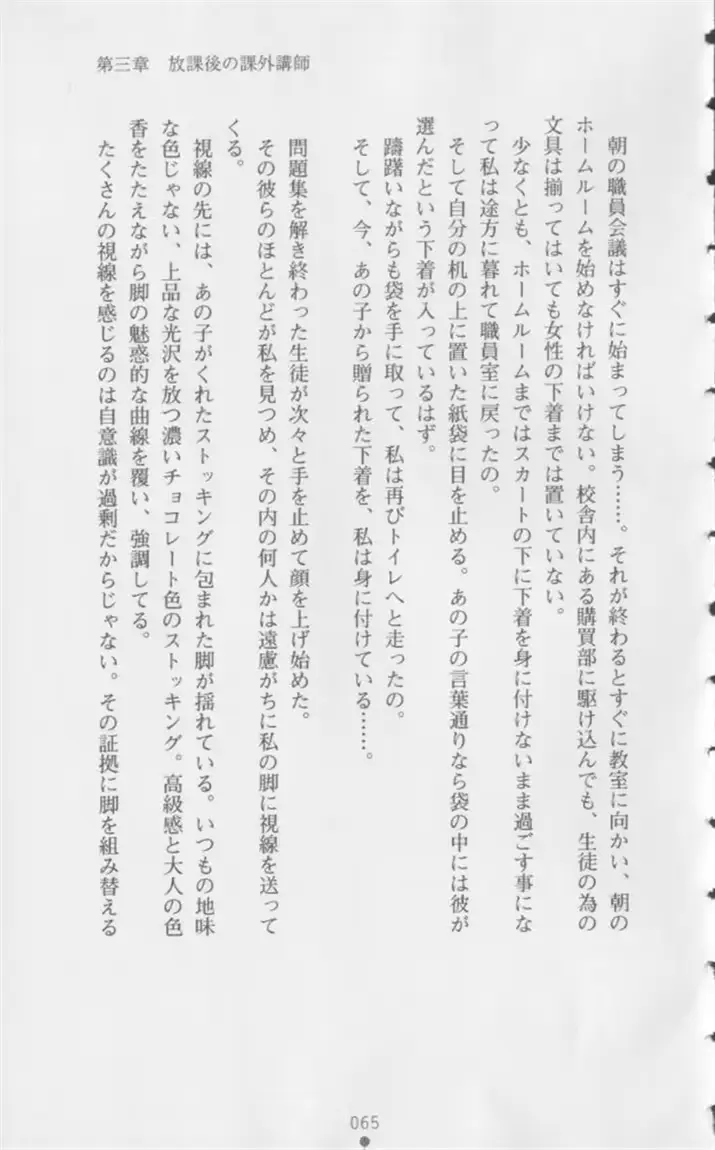 第三章　放課後の課外講師
朝の職員会議はすぐに始まってしまう……。それが終わるとすぐに教室に向かい、朝の
ホームルームを始めなければいけない。校舎内にある購買部に駆け込んでも、生徒の為の
文具は揃ってはいても女性の下着までは置いていない。
少なくとも、ホームルームまではスカートの下に下着を身に付けないまま過ごす事にな
って私は途方に暮れて職員室に戻ったの。
そして自分の机の上に置いた紙袋に目を止める。あの子の言葉通りなら袋の中には彼が
選んだという下着が入っているはず。
躊躇いながらも袋を手に取って、私は再びトイレへと走ったの。
そして、今、あの子から贈られた下着を、私は身に付けている……。
問題集を解き終わった生徒が次々と手を止めて顔を上げ始めた。
その彼らのほとんどが私を見つめ、その内の何人かは遠慮がちに私の脚に視線を送って
くる。
視線の先には、あの子がくれたストッキングに包まれた脚が揺れている。いつもの地味
な色じゃない、上品な光沢を放つ濃いチョコレート色のストッキング。高級感と大人の色
香をたたえながら脚の魅惑的な曲線を覆い、強調してる。
たくさんの視線を感じるのは自意識が過剰だからじゃない。その証拠に脚を組み替える
065